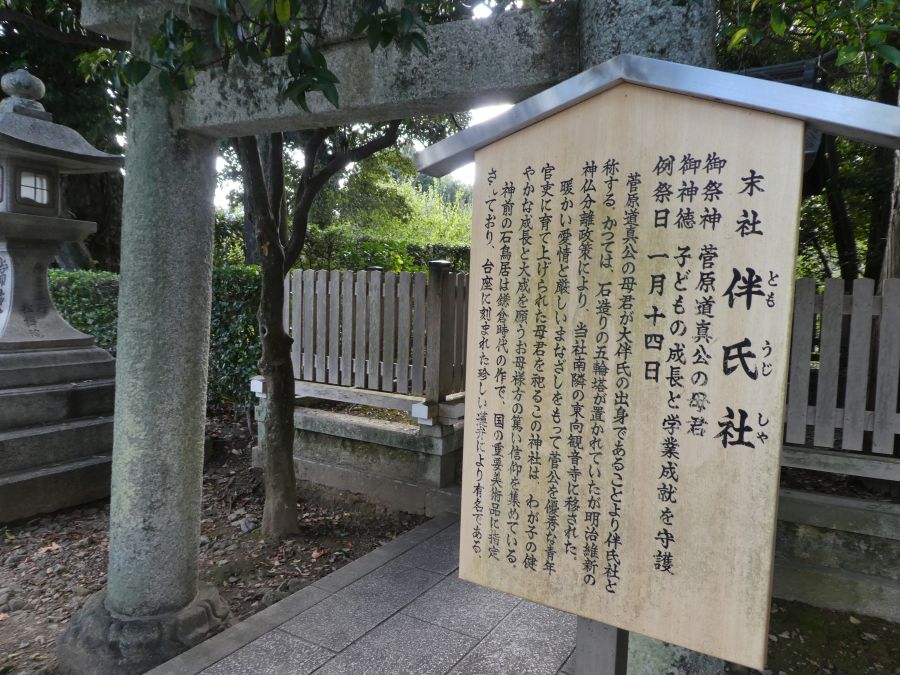 末社 伴氏社
とも うじ しゃ
御祭神 菅原道真公の母君
御神徳 子どもの成長と学業成就を守護
例祭日 一月十四日
菅原道真公の母君が大伴氏の出身であることより伴氏社と
称する。かつては、石造りの五輪塔が置かれていたが明治維新の
神仏分離政策により、当社南隣の東向観音寺に移された。
暖かい愛情と厳しいまなざしをもって菅公を優秀な青年
官吏に育て上げられた母君を祀るこの神社は、わが子の健
やかな成長と大成を願うお母様方の篤い信仰を集めている。
神前の石鳥居は鎌倉時代の作で、国の重要美術品に指定
さしており、台座に刻まれた珍しい蓮弁により有名である。